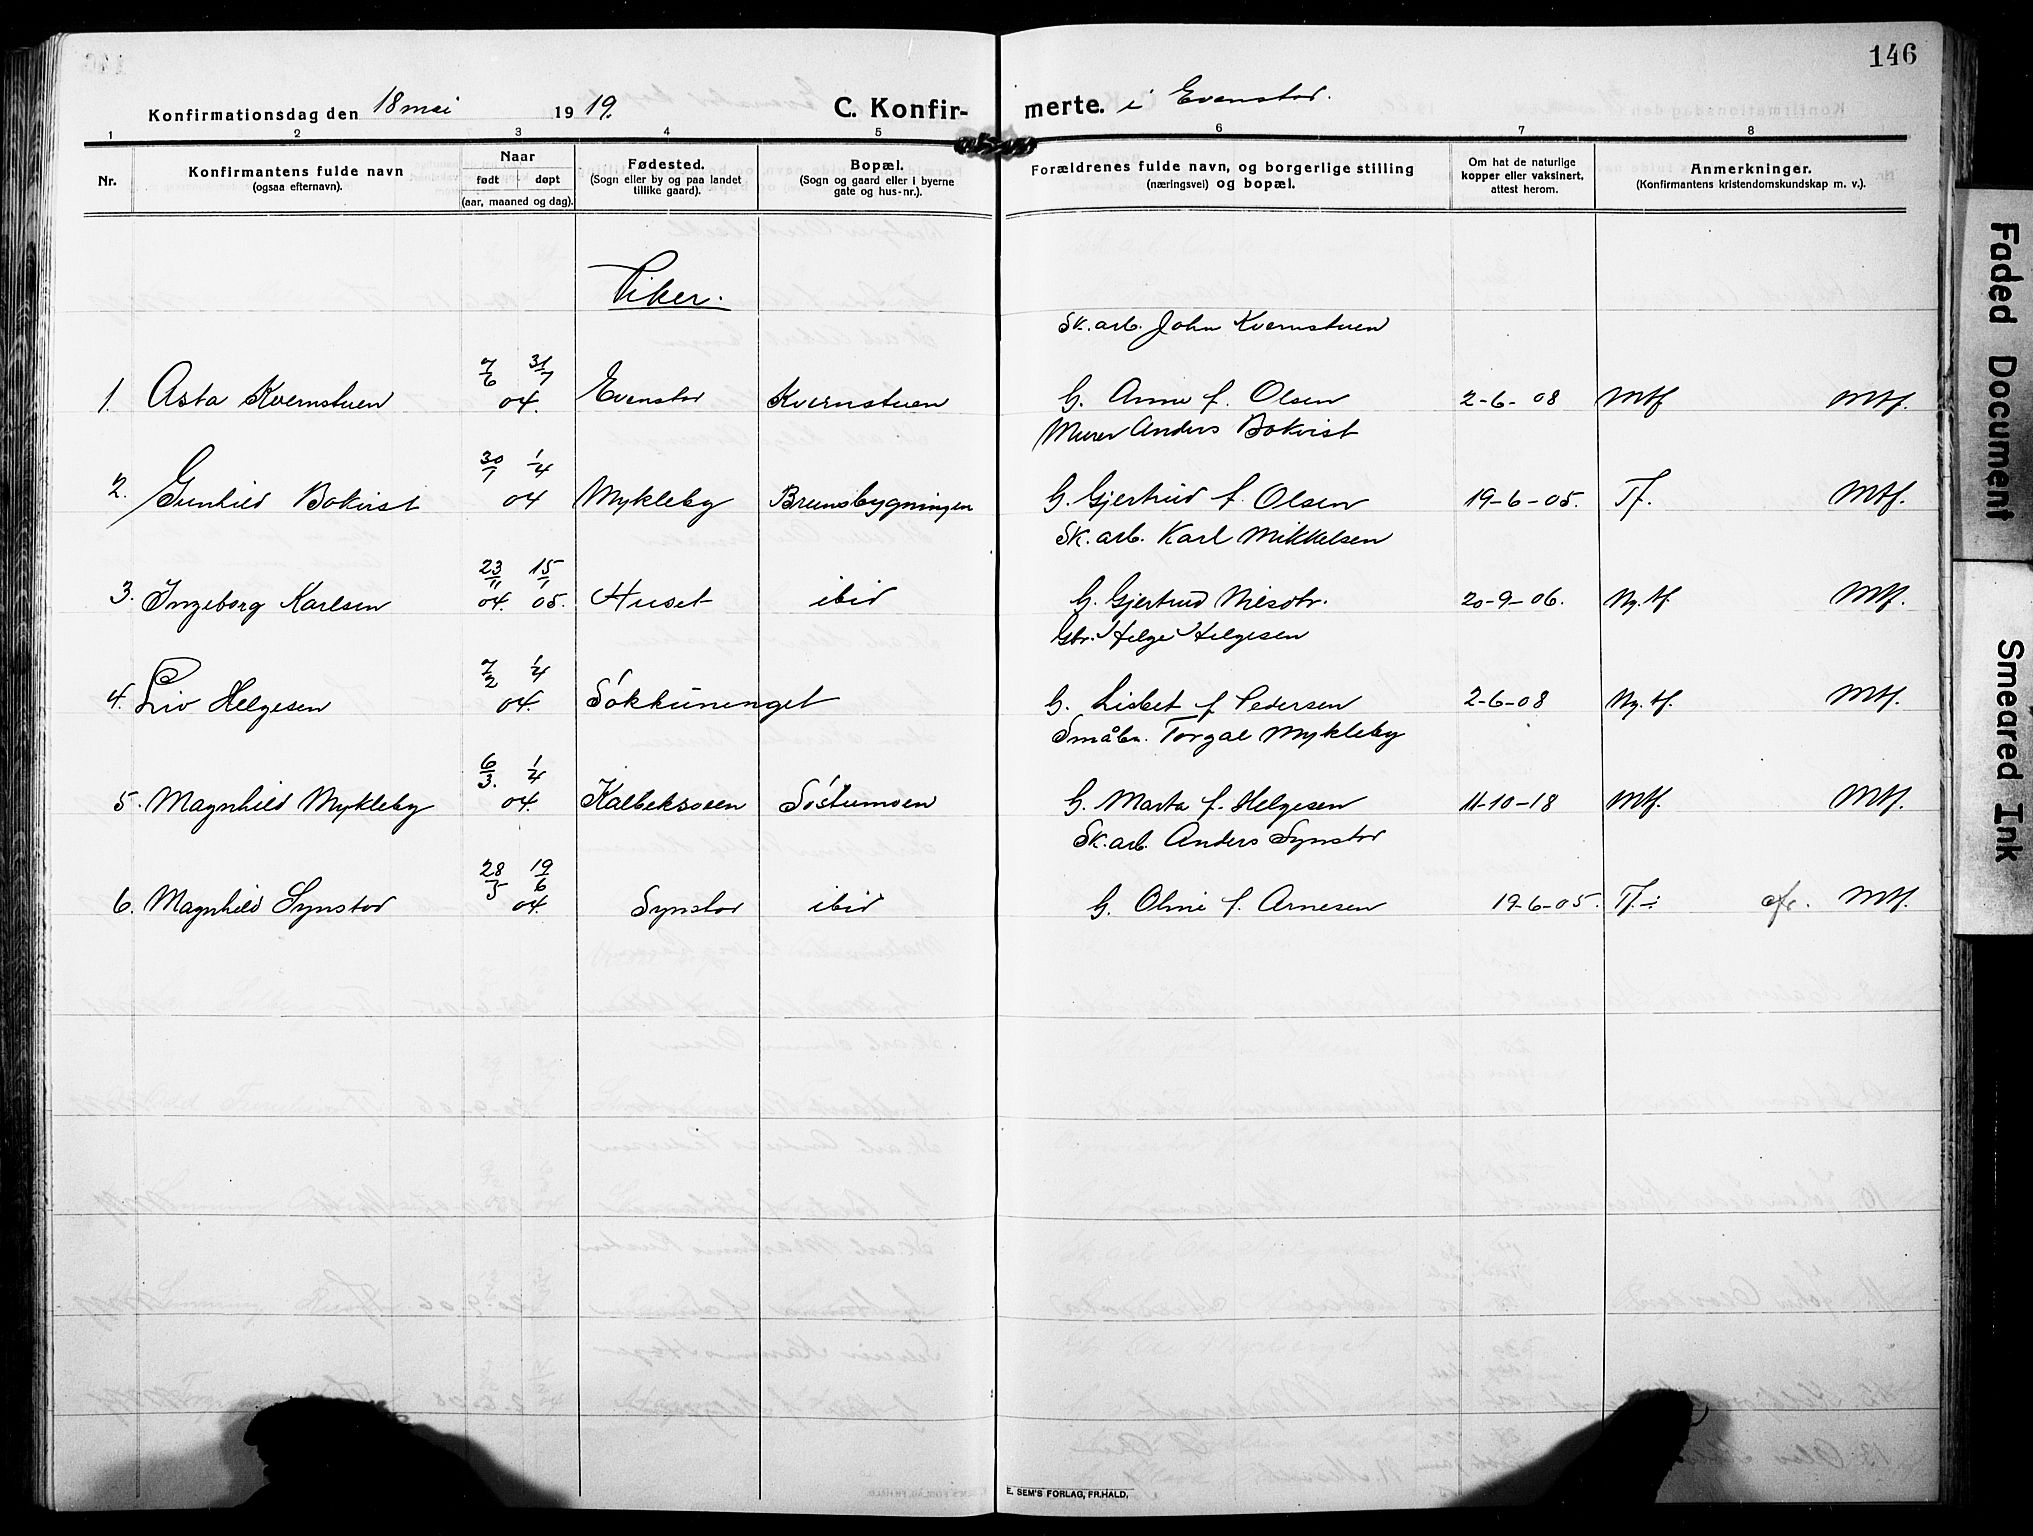 146
Konfirmationsdag den 18 mai 1919. C. Konfirmerte. i Evenstad.
1 2 3 4 5 6 7 8
Nr.
Konfirmantens fulde navn
(ogsaa efternavn).
Naar
født døpt
(aar, maaned og dag).
Fødested.
(Sogn eller by og paa landet
tillike gaard).
Bopæl.
(Sogn og gaard eller i byerne
gate og hus-nr.).
Forældrenes fulde navn, og borgerlige stilling
(næringsvei) og bopæl.
Om hat de naturlige
kopper eller vaksinert,
attest herom.
Anmerkninger.
(Konfirmantens kristendomskundskap m. v.).
Piker.
Sk. arb. John Kvernstuen
1. Asta Kvernstuen 7/6 31/7 04. Evenstad Kvernstuen G. Anne f. Olsen 2-6-08 Mtf Mtf.
Murer Anders Bokvist
2. Gunhild Bokvist 30/1 1/4 04 Mykleby Brunsbygningen G. Gjertrud f. Olsen 19-6-05. Tf. Mtf.
Sk. arb. Karl Mikkelsen
3. Ingeborg Karlsen 23/11 04. 15/1 05. Huset ibid G. Gjertrud Nilsdtr. 20-9-06. Ng. tf. Mtf.
Gbr. Helge Helgesen
4. Liv Helgesen 7/2 1/4 04. Søkkunenget G. Lisbet f Pedersen 2-6-08 Ng. tf. Mtf.
Småbr. Torgal Mykleby
5. Magnhild Mykleby 6/3. 1/4 04. Kalbeksoen Søstumoen G. Marta f. Helgesen 11-10-18 Mtf. Mtf.
Sk. arb. Anders Synstad
6. Magnhild Synstad 28/5 19/6 04. Synstad ibid G. Oline f. Arnesen 19-6-05. Tf. ÷ cfr. Mtf.
E. SEM'S FORLAG, FR.HALD.
Faded Document
Smeared Ink